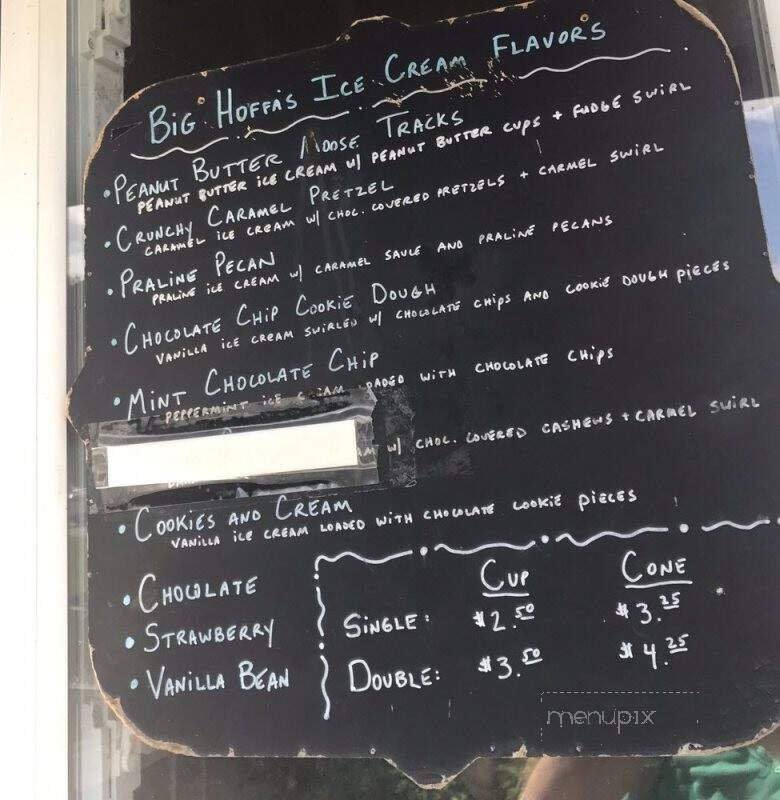 BIG HOFFA'S ICE CREAM FLAVORS
• PEANUT BUTTER MOOSE TRACKS
PEANUT BUTTER ICE CREAM W/ PEANUT BUTTER CUPS + FUDGE SWIRL
• CRUNCHY CARAMEL PRETZEL
CARAMEL ICE CREAM W/ CHOC. COVERED PRETZELS + CARMEL SWIRL
• PRALINE PECAN
PRALINE ICE CREAM W/ CARAMEL SAUCE AND PRALINE PECANS
• CHOCOLATE CHIP COOKIE DOUGH
VANILLA ICE CREAM SWIRLED W/ CHOCOLATE CHIPS AND COOKIE DOUGH PIECES
• MINT CHOCOLATE CHIP
PEPPERMINT ICE CREAM LOADED WITH CHOCOLATE CHIPS
W/ CHOC. COVERED CASHEWS + CARMEL SWIRL
• COOKIES AND CREAM
VANILLA ICE CREAM LOADED WITH CHOCOLATE COOKIE PIECES
• CHOCOLATE
• STRAWBERRY
• VANILLA BEAN
CUP CONE
SINGLE: $2.50 $3.25
DOUBLE: $3.50 $4.25
menupix